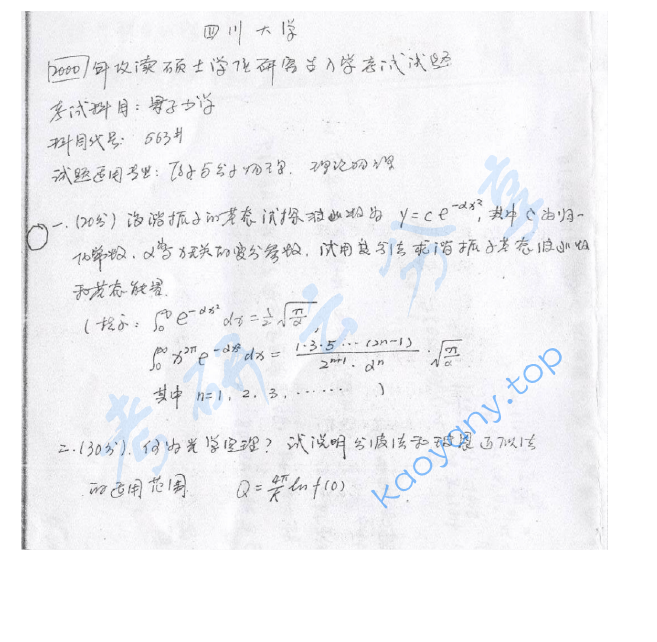 四川大学
2000年攻读硕士学位研究生入学考试试题
考试科目：量子力学
科目代号：563#
试题适用专业：原子与分子物理、理论物理
一.(20分)设谐振子的基态试探波函数为 y=ce^{-αx²},其中c为归
一化常数,α为与x无关的变分参数,试用变分法求谐振子基态波函数
和基态能量.
(提示: ∫₀^∞ e^{-αx²} dx = 1/2 √(π/α)
∫₀^∞ x^{2n} e^{-αx²} dx = 1·3·5···(2n-1) / 2^{n+1}·αⁿ · √(π/α)
其中 n=1, 2, 3, ······ )
二.(30分).何为光学定理？试说明分波法和玻恩近似法
的适用范围. Q=4π/k lm f(0)
考研云分享
kaoyany.top